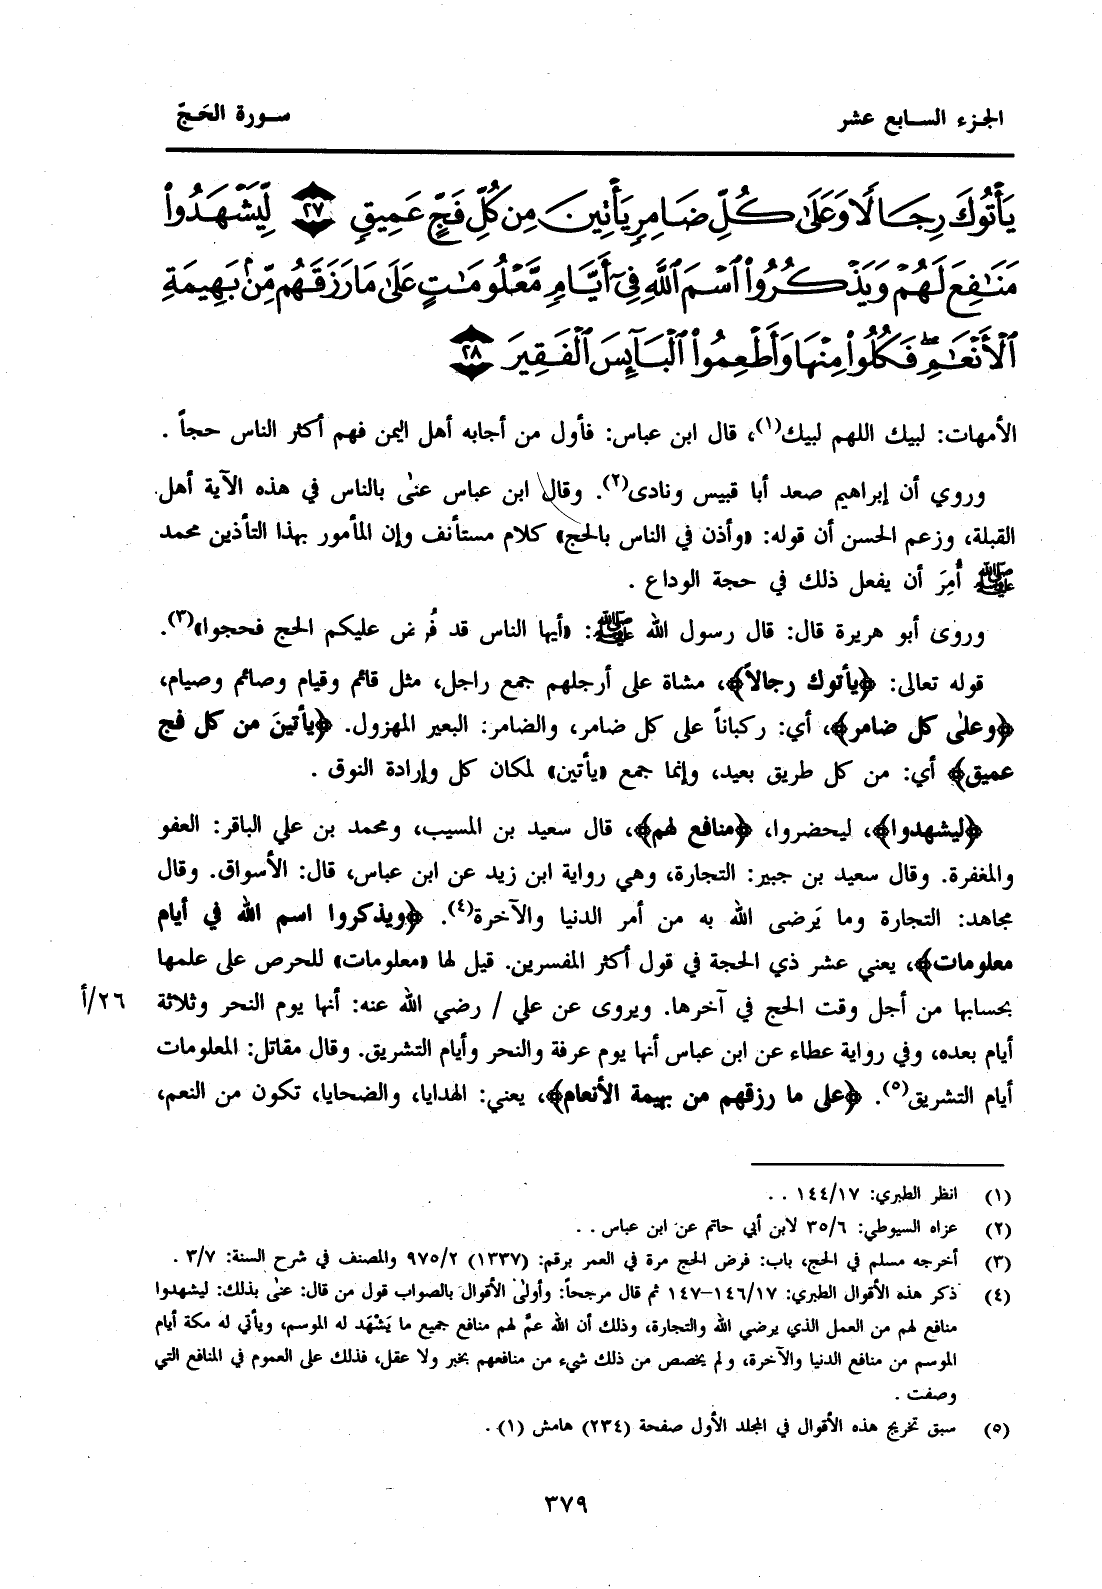 الجزء السابع عشر
سورة الحَجّ
يَأْتُوكَ رِجَالًا وَعَلَىٰ كُلِّ ضَامِرٍ يَأْتِينَ مِن كُلِّ فَجٍّ عَمِيقٍ ﴿٢٧﴾ لِّيَشْهَدُوا۟
مَنَـٰفِعَ لَهُمْ وَيَذْكُرُوا۟ ٱسْمَ ٱللَّهِ فِىٓ أَيَّامٍ مَّعْلُومَـٰتٍ عَلَىٰ مَا رَزَقَهُم مِّنۢ بَهِيمَةِ
ٱلْأَنْعَـٰمِ ۖ فَكُلُوا۟ مِنْهَا وَأَطْعِمُوا۟ ٱلْبَآئِسَ ٱلْفَقِيرَ ﴿٢٨﴾
الأمهات: لبيك اللهم لبيك(١)، قال ابن عباس: فأول من أجابه أهل اليمن فهم أكثر الناس حجاً .
وروي أن إبراهيم صعد أبا قبيس ونادى(٢). وقال ابن عباس عنىٰ بالناس في هذه الآية أهل
القبلة، وزعم الحسن أن قوله: «وأذن في الناس بالحج» كلام مستأنف وإن المأمور بهذا التأذين محمد
ﷺ أُمِرَ أن يفعل ذلك في حجة الوداع .
وروىٰ أبو هريرة قال: قال رسول الله ﷺ: «أيها الناس قد فُرض عليكم الحج فحجوا»(٣).
قوله تعالى: ﴿يأتوك رجالاً﴾، مشاة على أرجلهم جمع راجل، مثل قائم وقيام وصائم وصيام،
﴿وعلىٰ كل ضامر﴾، أي: ركباناً على كل ضامر، والضامر: البعير المهزول. ﴿يأتينَ من كل فج
عميق﴾ أي: من كل طريق بعيد، وإنما جمع «يأتين» لمكان كل وإرادة النوق .
﴿ليشهدوا﴾، ليحضروا، ﴿منافع لهم﴾، قال سعيد بن المسيب، ومحمد بن علي الباقر: العفو
والمغفرة. وقال سعيد بن جبير: التجارة، وهي رواية ابن زيد عن ابن عباس، قال: الأسواق. وقال
مجاهد: التجارة وما يَرضى الله به من أمر الدنيا والآخرة(٤). ﴿ويذكروا اسم الله في أيام
معلومات﴾، يعني عشر ذي الحجة في قول أكثر المفسرين. قيل لها «معلومات» للحرص على علمها
بحسابها من أجل وقت الحج في آخرها. ويروى عن علي / رضي الله عنه: أنها يوم النحر وثلاثة
٢٦/أ
أيام بعده، وفي رواية عطاء عن ابن عباس أنها يوم عرفة والنحر وأيام التشريق. وقال مقاتل: المعلومات
أيام التشريق(٥). ﴿على ما رزقهم من بهيمة الأنعام﴾، يعني: الهدايا، والضحايا، تكون من النعم،
(١) انظر الطبري: ١٤٤/١٧ . .
(٢) عزاه السيوطي: ٣٥/٦ لابن أبي حاتم عن ابن عباس . .
(٣) أخرجه مسلم في الحج، باب: فرض الحج مرة في العمر برقم: (١٣٣٧) ٩٧٥/٢ والمصنف في شرح السنة: ٣/٧ .
(٤) ذكر هذه الأقوال الطبري: ١٤٦/١٧-١٤٧ ثم قال مرجحاً: وأولىٰ الأقوال بالصواب قول من قال: عنىٰ بذلك: ليشهدوا
منافع لهم من العمل الذي يرضي الله والتجارة، وذلك أن الله عمَّ لهم منافع جميع ما يَشْهَد له الموسم، ويأتي له مكة أيام
الموسم من منافع الدنيا والآخرة، ولم يخصص من ذلك شيء من منافعهم بخبر ولا عقل، فذلك على العموم في المنافع التي
وصفت .
(٥) سبق تخريج هذه الأقوال في المجلد الأول صفحة (٢٣٤) هامش (١) .
٣٧٩